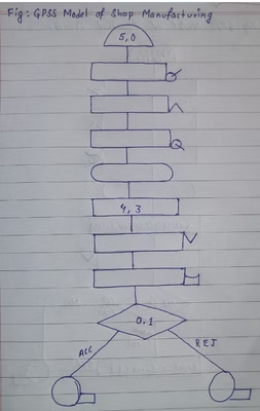 Fig: GPSS Model of Shop Manufacturing
5,0
4,3
0.1
ACC
REJ